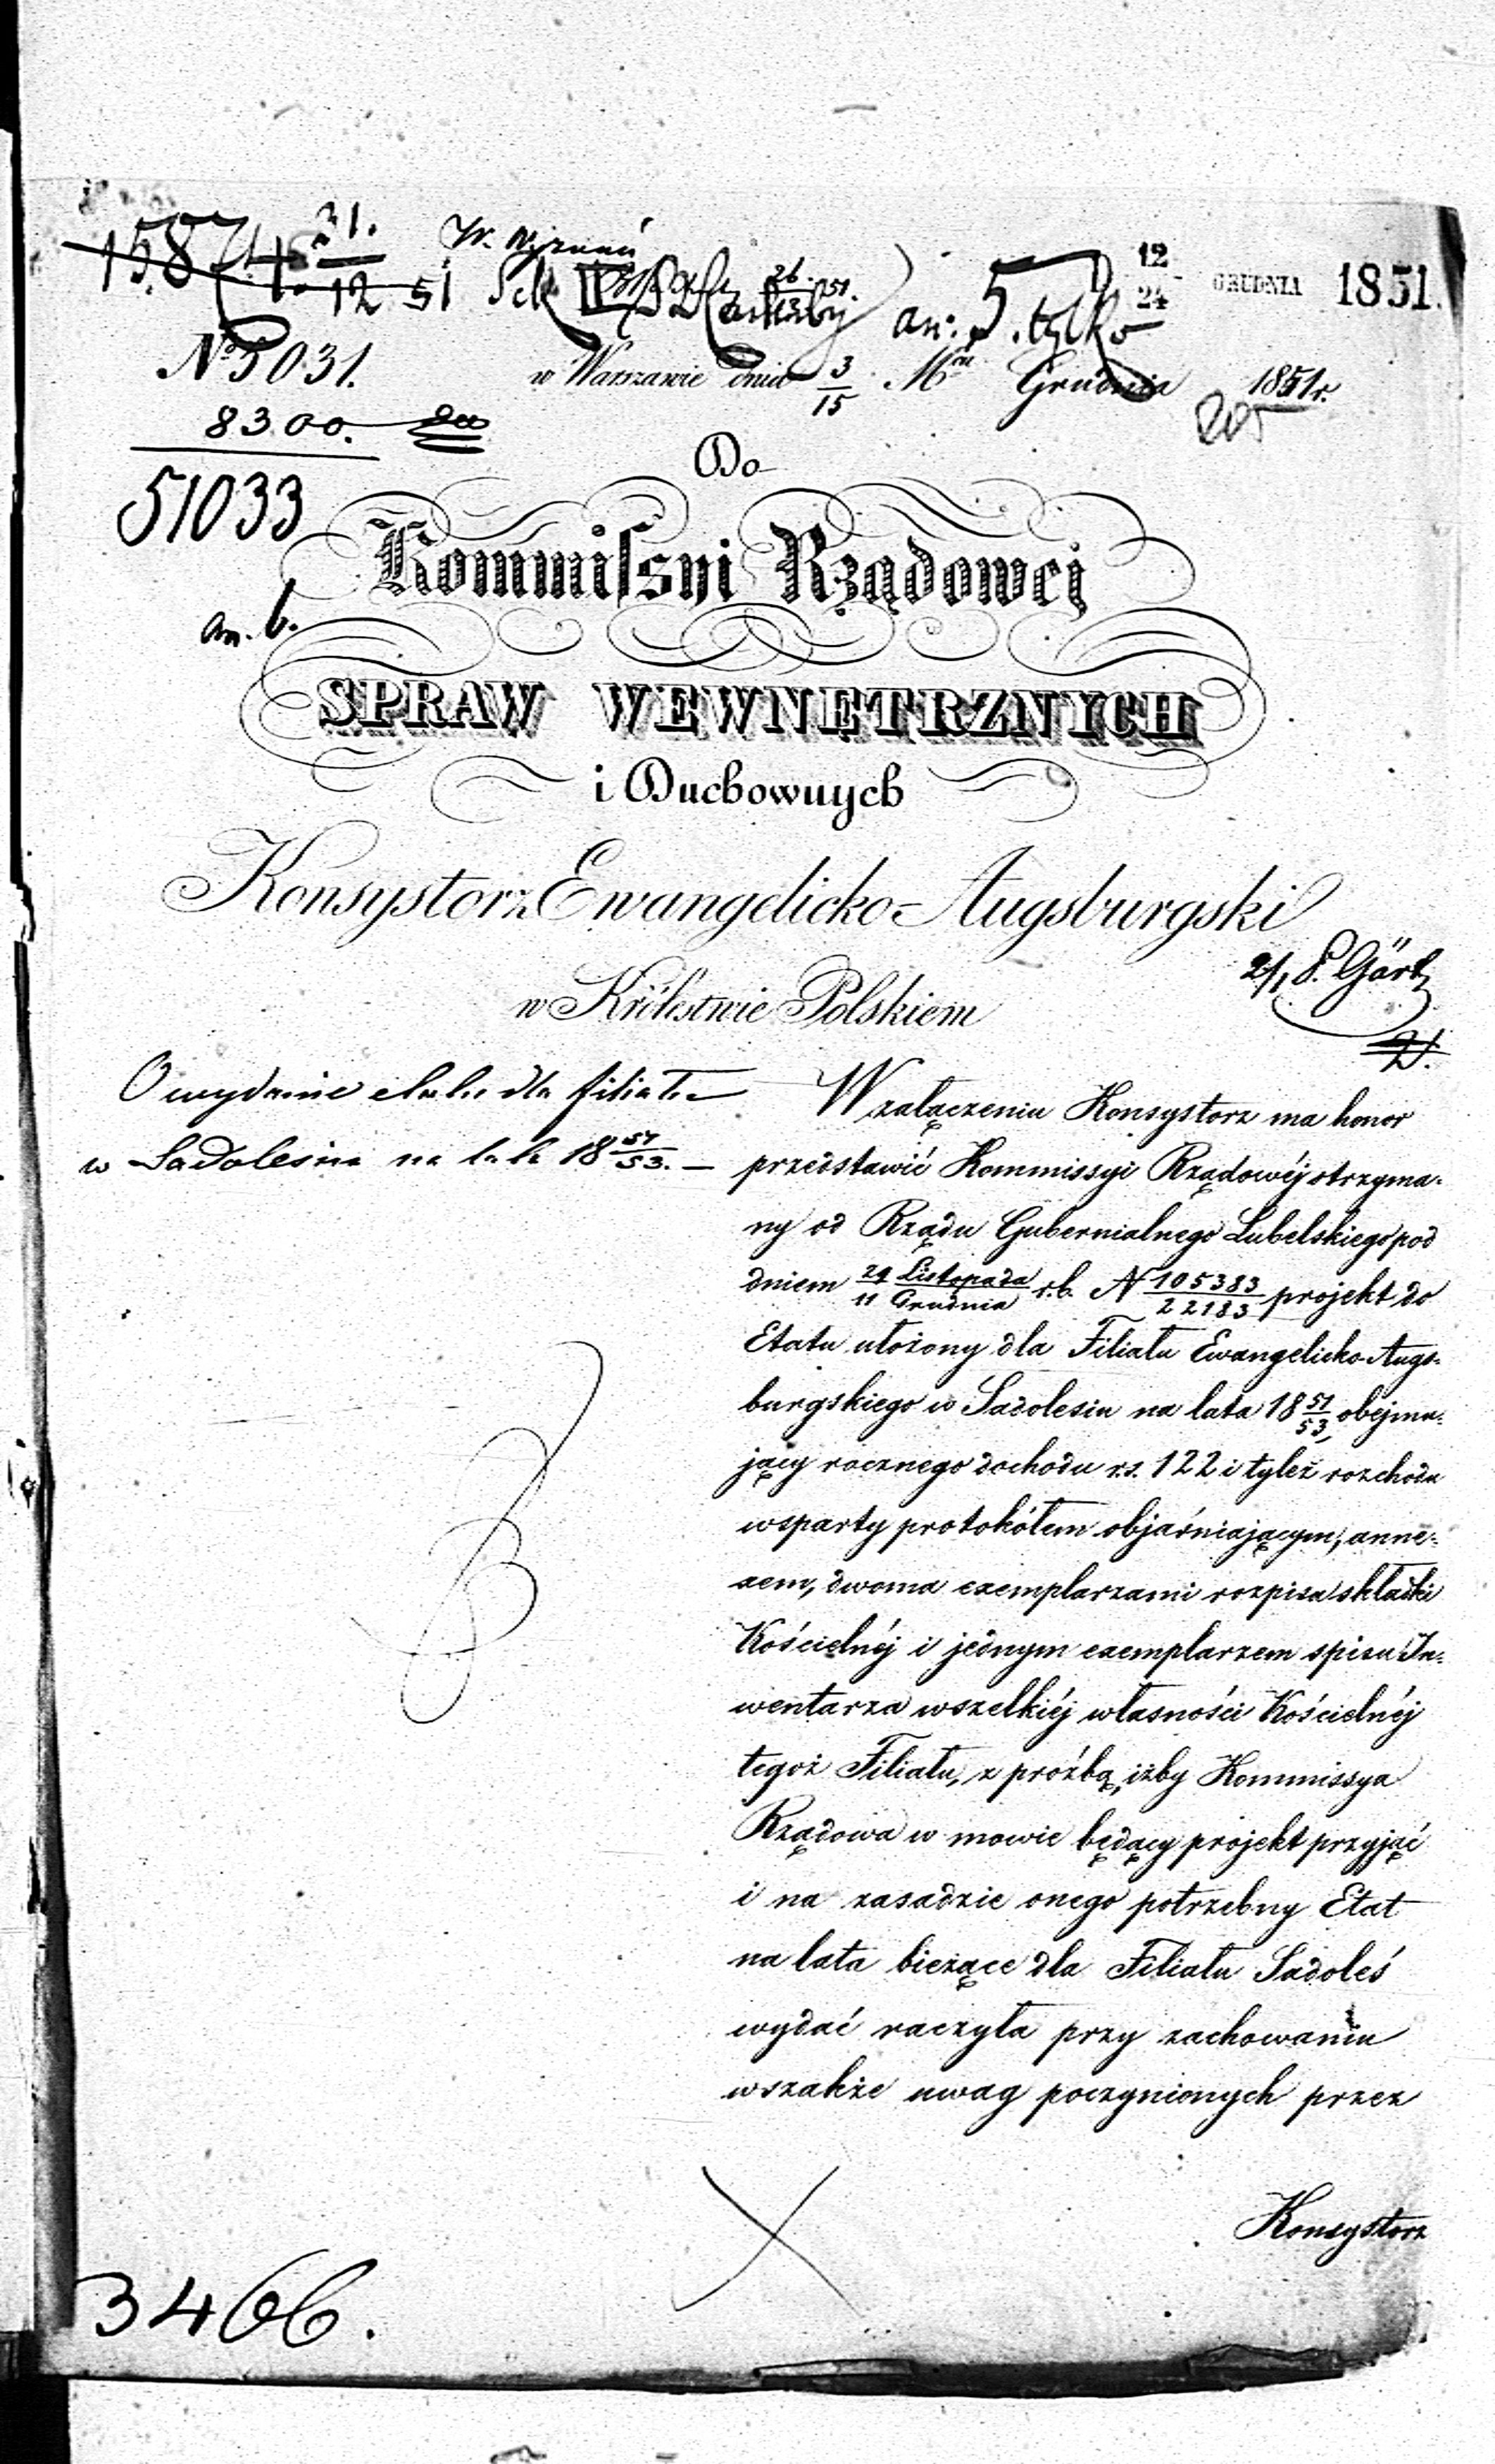 15874 31.
12 51
W. Wyznań
26 51.
an: 5. tylko
12
24 GRUDNIA 1851.
No 5031.
w Warszawie dnia 3/15 Mca Grudnia 1851 r.
8300.
51033
Do
Kommissyi Rządowej
an. 6.
SPRAW WEWNĘTRZNYCH
i Duchownych
Konsystorz Ewangelicko-Augsburgski
w Królestwie Polskiem
O wydanie etatu dla filiału
w Sadolesiu na lata 18 51/53. —
W załączeniu Konsystorz ma honor
przedstawić Kommissyi Rządowéj otrzyma-
ny od Rządu Gubernialnego Lubelskiego pod
dniem 29 Listopada/11 Grudnia r.b. N 105383/22183 projekt do
Etatu ułożony dla Filiału Ewangelicko-Augs-
burgskiego w Sadolesiu na lata 18 51/53, obejmu-
jący rocznego dochodu r.s. 122 i tyleż rozchodu
wsparty protokółem objaśniającym, anne-
xem, dwoma exemplarzami rozpisu składki
Kościelnéj i jednym exemplarzem spisu In-
wentarza wszelkiéj własności Kościelnéj
tegoż Filiału, z proźbą, iżby Kommissya
Rządowa w mowie będący projekt przyjąć
i na zasadzie onego potrzebny Etat
na lata bieżące dla Filiału Sadoleś
wydać raczyła przy zachowaniu
wszakże uwag poczynionych przez
Konsystorz
3466.